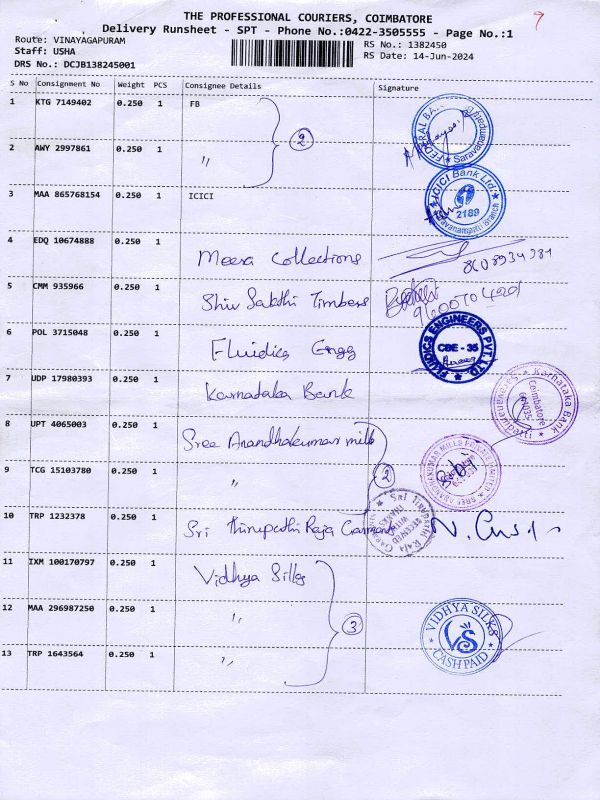 THE PROFESSIONAL COURIERS, COIMBATORE
9
Delivery Runsheet - SPT - Phone No.:0422-3505555 - Page No.:1
Route: VINAYAGAPURAM
RS No.: 1382450
Staff: USHA
RS Date: 14-Jun-2024
DRS No.: DCJB138245001
S No Consignment No Weight PCS Consignee Details Signature
1 KTG 7149402 0.250 1 FB
FEDERAL BANK
Saravanampatti
2
2 AWY 2997861 0.250 1 "
3 MAA 865768154 0.250 1 ICICI
ICICI Bank Ltd.
2189
Saravanampatti Branch
4 EDQ 10674888 0.250 1 Meera Collections
5 CMM 935966 0.250 1 Shiv Sakthi Timbers
6 POL 3715048 0.250 1 Fluidics Engg
FLUIDICS ENGINEERS PVT. LTD
CBE - 35
7 UDP 17980393 0.250 1 Karnadaka Bank
Karnataka Bank
Coimbatore
641035
8 UPT 4065003 0.250 1 Sree Anandhakumar mills
SREE ANANDHAKUMAR MILLS PRIVATE LIMITED
2
9 TCG 15103780 0.250 1 "
10 TRP 1232378 0.250 1 Sri Thirupathi Raja Garments
RECEIVED
WITH
THANKS
11 IXM 100170797 0.250 1 Vidhya Silks
12 MAA 296987250 0.250 1 "
3
VIDHYA SILKS
VS
CASH PAID
13 TRP 1643564 0.250 1 "